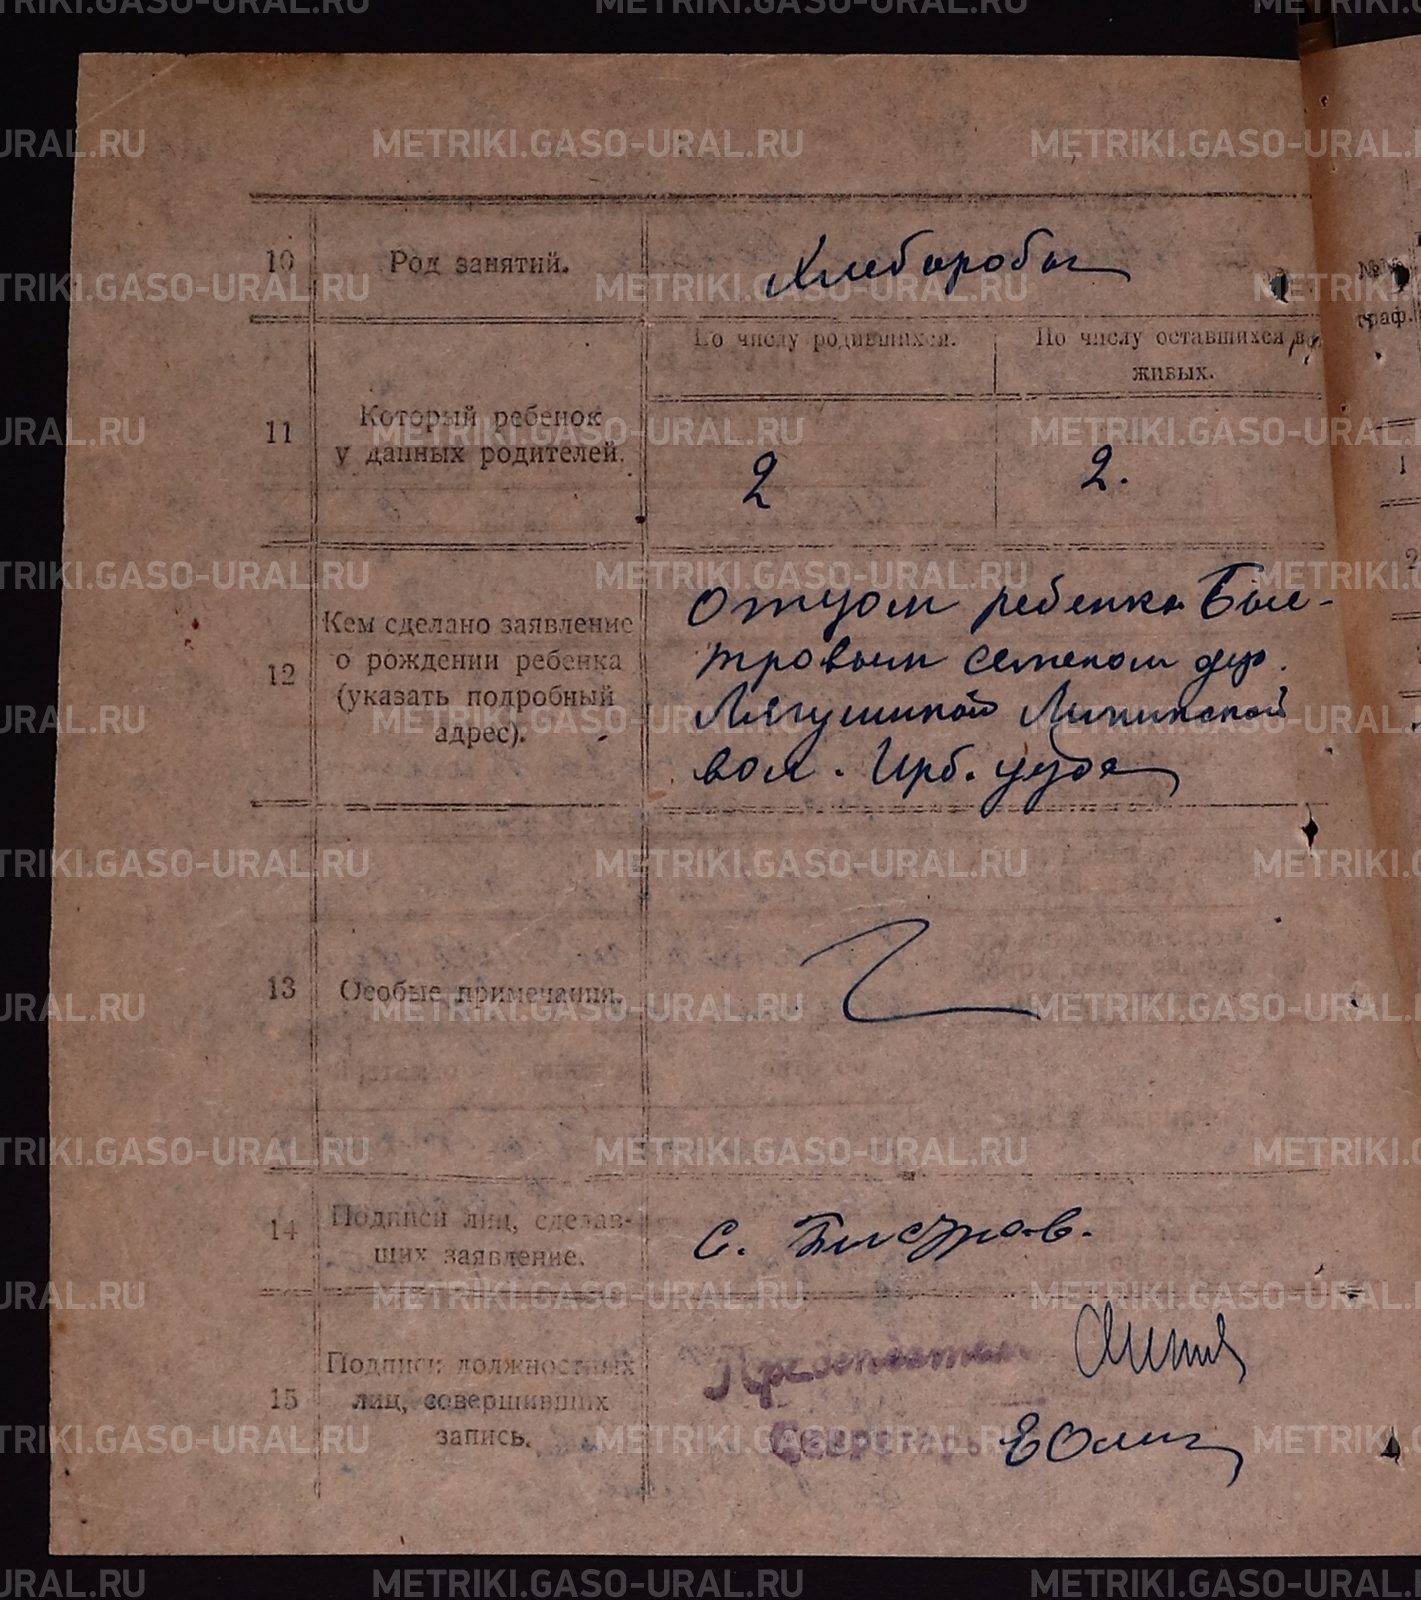 10 Род занятий. Хлеборобы
По числу родившихся. По числу оставшихся в
живых.
11 Который ребенок
у данных родителей. 2 2.
12 Кем сделано заявление
о рождении ребенка
(указать подробный
адрес).
отцом ребенка Быс-
тровым Семеном дер.
Лягушиной
вол. Ирб. уезда
13 Особые примечания.
14 Подписи лиц, сделав-
ших заявление. С. Быстров.
15 Подписи должностных
лиц, совершивших
запись.
Председатель
Секретарь
№№
граф.
1
2
METRIKI.GASO-URAL.RU